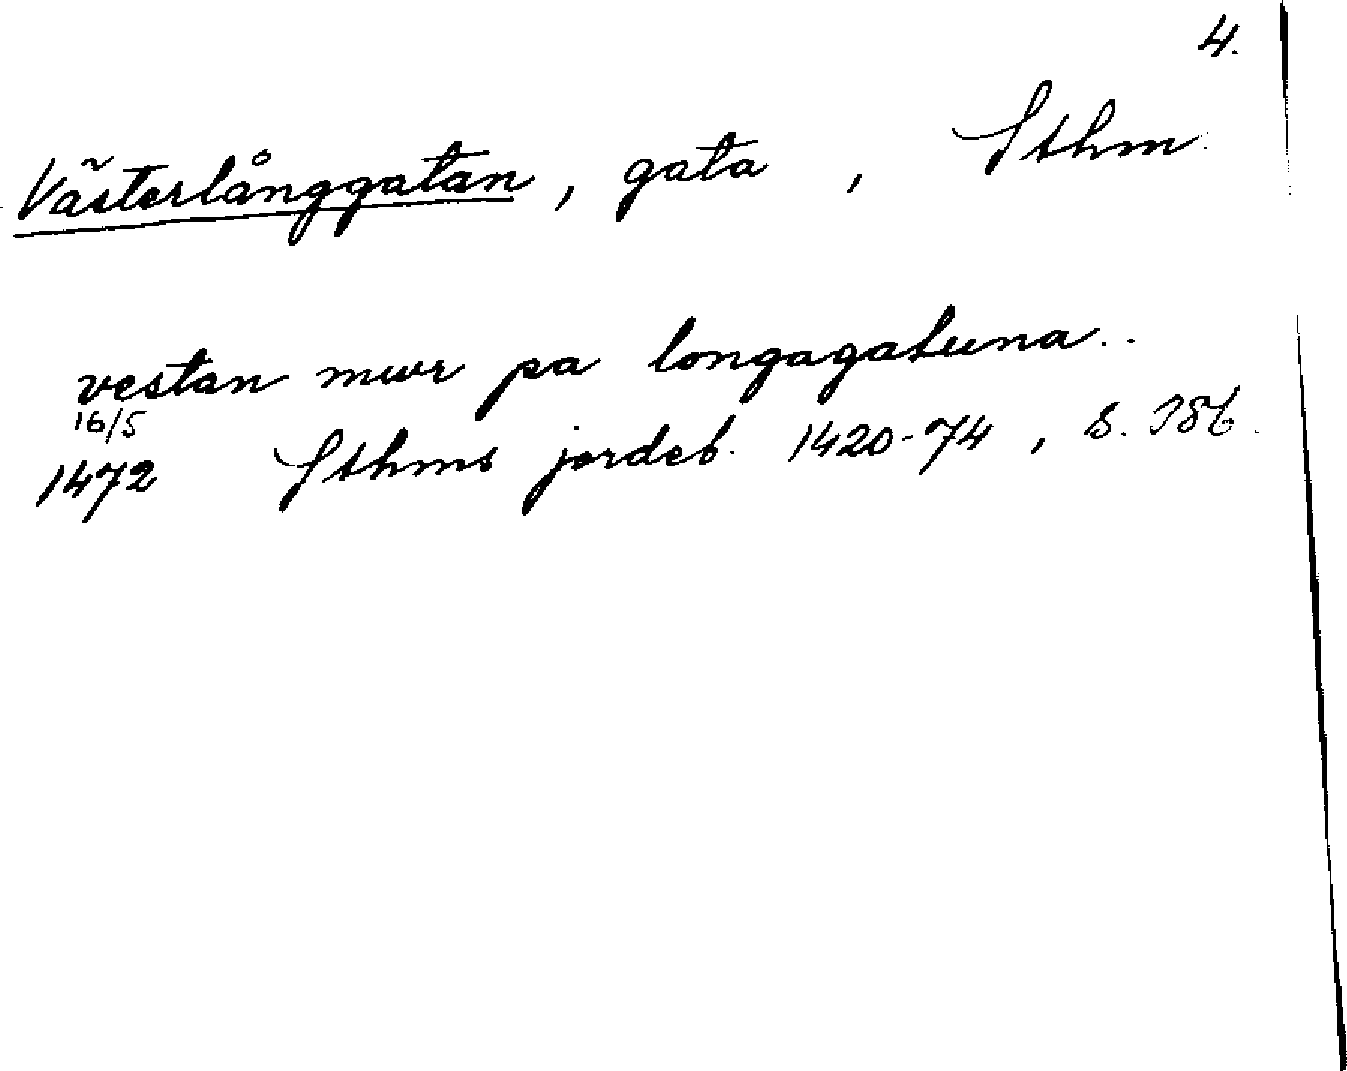 4.
Västerlånggatan, gata, Sthm
vestan mwr pa longagatuna..
16/5
1472 Sthms jordeb. 1420-74, s. 386.